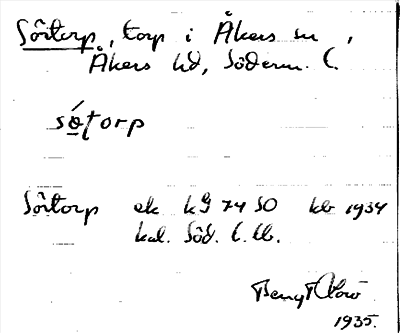 Sörtorp, torp i Åkers sn,
Åkers hd, Söderm. l.
sǿtorp
Sörtorp ek kg 74 SO kb 1934
kal. Söd. l. tb.
Bengt
1935.